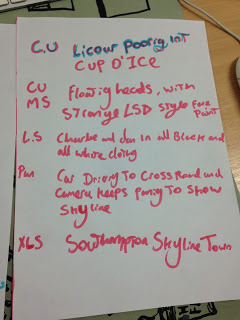 C.U Licour Poorig Int
CUP O'ICE
CU Floatig heads, with
MS STrange LSD style Face
Paint
L.S Charlie and dan in all Black and
all white clothing
Pan Car Driving To CrossRoad and
Camera keeps panig To show
Skyline
XLS Southampton Skyline Town